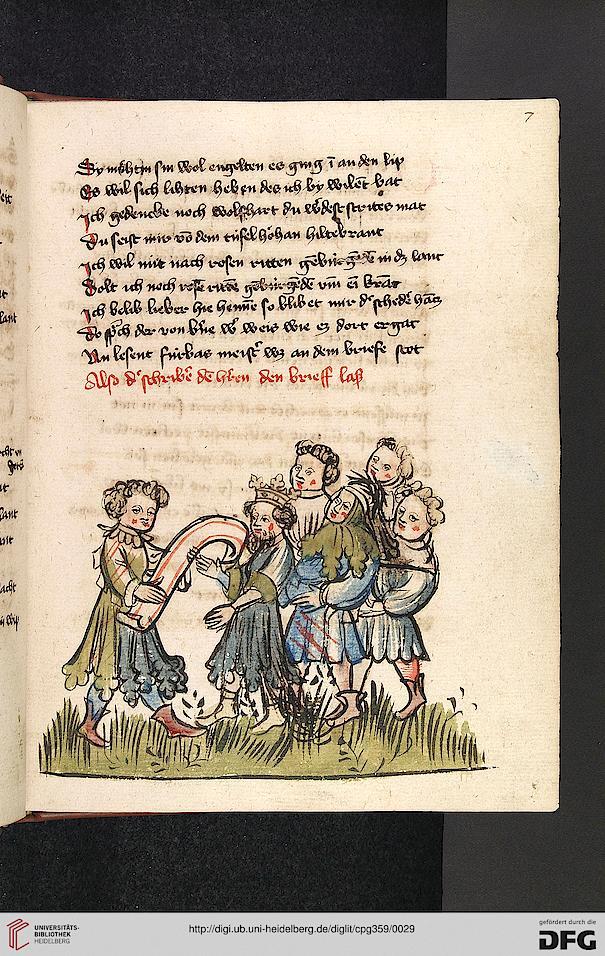 7
Sy moͤhtin sin wol engelten es ging ī an den lip
Es wil sich lihten heben des ich by wilēt bat
Ich gedencke noch wolfhart du wͦdest strites mat
Du seist mir vō dem tufel sprach hiltebrant
Ich wil mit nach rosen ritten gein in dz lant
Solt ich noch rosen ritten
Ich belib lieber hie heime so blibet mir
Do sp̄ch der von b'ne wͦ weis wie ez dort ergat
Nu lesent furbas meist' wz an dem briefe stot
Also d' schribē dē h'ren den brieff laß
UNIVERSITÄTS-
BIBLIOTHEK
HEIDELBERG
http://digi.ub.uni-heidelberg.de/diglit/cpg359/0029
gefördert durch die
DFG